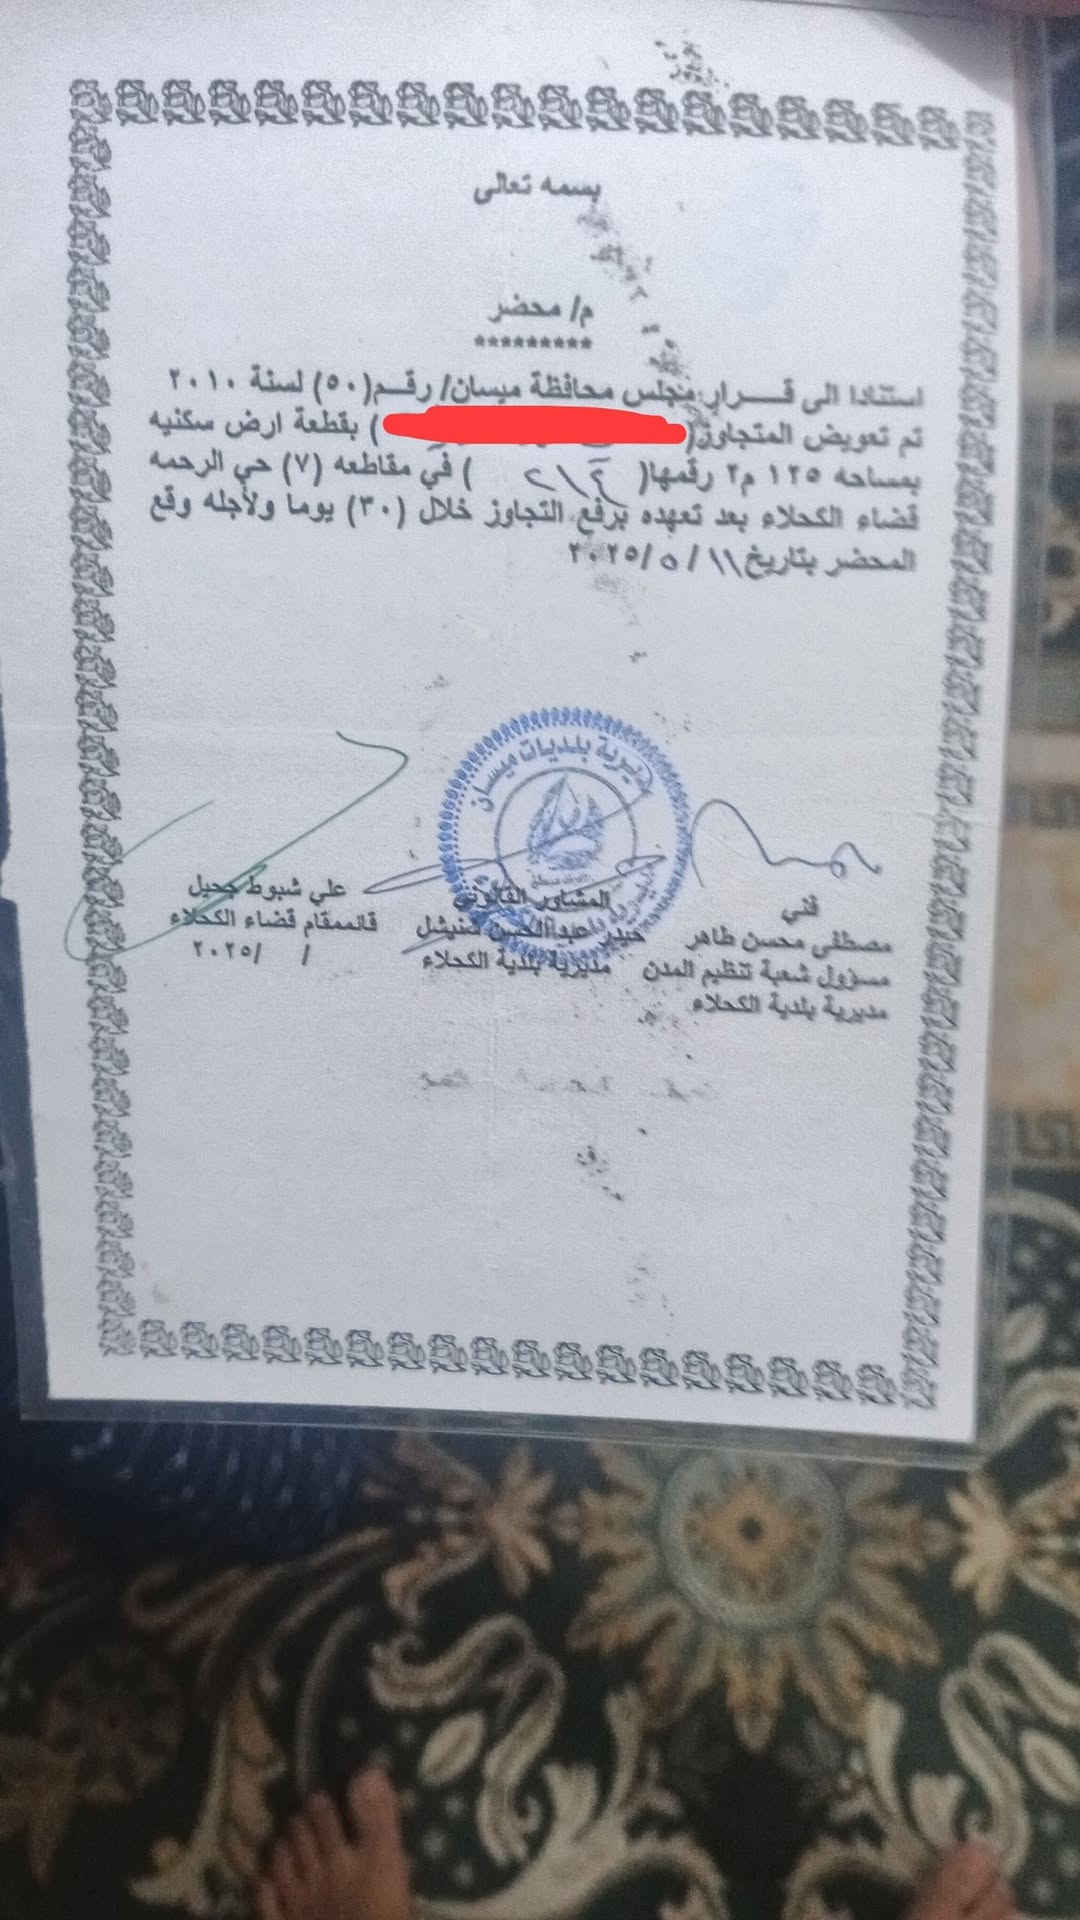 بسمه تعالى
م/ محضر
*********
استنادا الى قــــرار مجلس محافظة ميسان/ رقـم(٥٠) لسنة ٢٠١٠
تم تعويض المتجاوز( ) بقطعة ارض سكنيه
بمساحه ١٢٥ م٢ رقمها( ) في مقاطعه (٧) حي الرحمه
قضاء الكحلاء بعد تعهده برفع التجاوز خلال (٣٠) يوما ولأجله وقع
المحضر بتاريخ ١١ / ٥ /٢٠٢٥
مديرية بلديات ميسان
فني
مصطفى محسن طاهر
مسؤول شعبة تنظيم المدن
مديرية بلدية الكحلاء
المشاور القانوني
حيدر عبد الحسن شنيشل
مديرية بلدية الكحلاء
علي شبوط جحيل
قائممقام قضاء الكحلاء
/ /٢٠٢٥